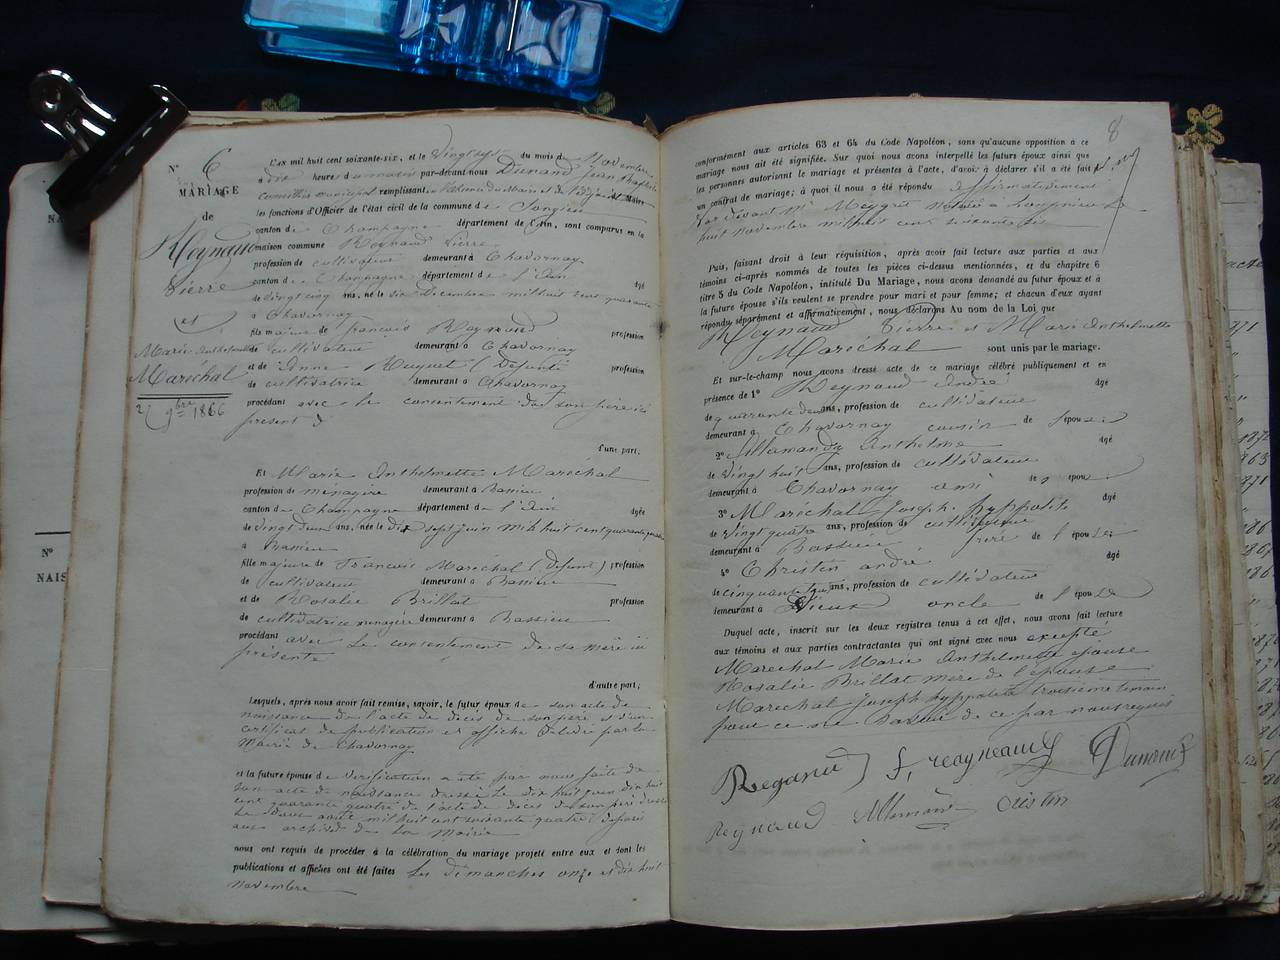 N° 6
MARIAGE
de
Reynaud
Pierre
et
Marie Anthelmette
Maréchal
27 9bre 1866
L'AN mil huit cent soixante-six, et le vingt sept du mois de Novembre
à dix heures du matin par-devant nous Dunand Jean
Conseiller municipal remplissant Maire
les fonctions d'Officier de l'état civil de la commune de Songieu
canton de Champagne département de l'Ain, sont comparus en la
maison commune Reynaud Pierre
profession de cultivateur demeurant à Chavornay
canton de Champagne département de l'Ain âgé
de vingt cinq ans, né le six Décembre mil huit cent quarante
à Chavornay
fils majeur de francois Reynaud profession
de cultivateur demeurant à Chavornay
et de Anne Huguet (Défunte) profession
de cultivatrice demeurant à Chavornay
procédant avec le consentement de son père ici
présent
d'une part;
Et Marie Anthelmette Maréchal
profession de ménagère demeurant à Bassieu
canton de Champagne département de l'Ain âgée
de vingt deux ans, née le dix sept juin mil huit cent quarante
à Bassieu
fille majeure de Francois Maréchal (Défunt) profession
de cultivateur demeurant à Bassieu
et de Rosalie Brillat profession
de cultivatrice ménagère demeurant à Bassieu
procédant avec le consentement de sa mère ici
présente
d'autre part;
Lesquels, après nous avoir fait remise, savoir, le futur époux de son acte de
naissance de l'acte de décès de son père et d'un
certificat de publication et affiche délivré par la
Mairie de Chavornay
et la future épouse de vérification a été par nous faite de
son acte de naissance dressé le dix huit juin dix huit
cent quarante quatre de l'acte de décès de son père dressé
le douze août mil huit cent soixante quatre déposés
aux archives de la Mairie
nous ont requis de procéder à la célébration du mariage projeté entre eux et dont les
publications et affiches ont été faites les dimanches onze et dix huit
novembre
8
conformément aux articles 63 et 64 du Code Napoléon, sans qu'aucune opposition à ce
mariage nous ait été signifiée. Sur quoi nous avons interpellé les futurs époux ainsi que
les personnes autorisant le mariage et présentes à l'acte, d'avoir à déclarer s'il a été fait
un contrat de mariage; à quoi il nous a été répondu affirmativement
par devant Me Meygret Notaire à Lompnieu le
huit novembre mil huit cent soixante six
Puis, faisant droit à leur réquisition, après avoir fait lecture aux parties et aux
témoins ci-après nommés de toutes les pièces ci-dessus mentionnées, et du chapitre 6
titre 5 du Code Napoléon, intitulé Du Mariage, nous avons demandé au futur époux et à
la future épouse s'ils veulent se prendre pour mari et pour femme; et chacun d'eux ayant
répondu séparément et affirmativement, nous déclarons Au nom de la Loi que
Reynaud Pierre et Marie Anthelmette
Maréchal sont unis par le mariage.
Et sur-le-champ nous avons dressé acte de ce mariage célébré publiquement et en
présence de 1° Reynaud André âgé
de quarante deux ans, profession de cultivateur
demeurant à Chavornay cousin de l'époux
2° Allemand Anthelme âgé
de vingt huit ans, profession de cultivateur
demeurant à Chavornay ami de l'époux
3° Maréchal Joseph hyppolite âgé
de vingt quatre ans, profession de cultivateur
demeurant à Bassieu frère de l'épouse
4° Christin andré âgé
de cinquante ans, profession de cultivateur
demeurant à Vieux oncle de l'épouse
Duquel acte, inscrit sur les deux registres tenus à cet effet, nous avons fait lecture
aux témoins et aux parties contractantes qui ont signé avec nous excepté
Maréchal Marie Anthelmette épouse
Rosalie Brillat mère de l'épouse
Maréchal Joseph hyppolite troisième témoin
pour ce ne savoir de ce par nous requis
Reganud f, reayneaud Dunand
Reynaud Allemand Cristin